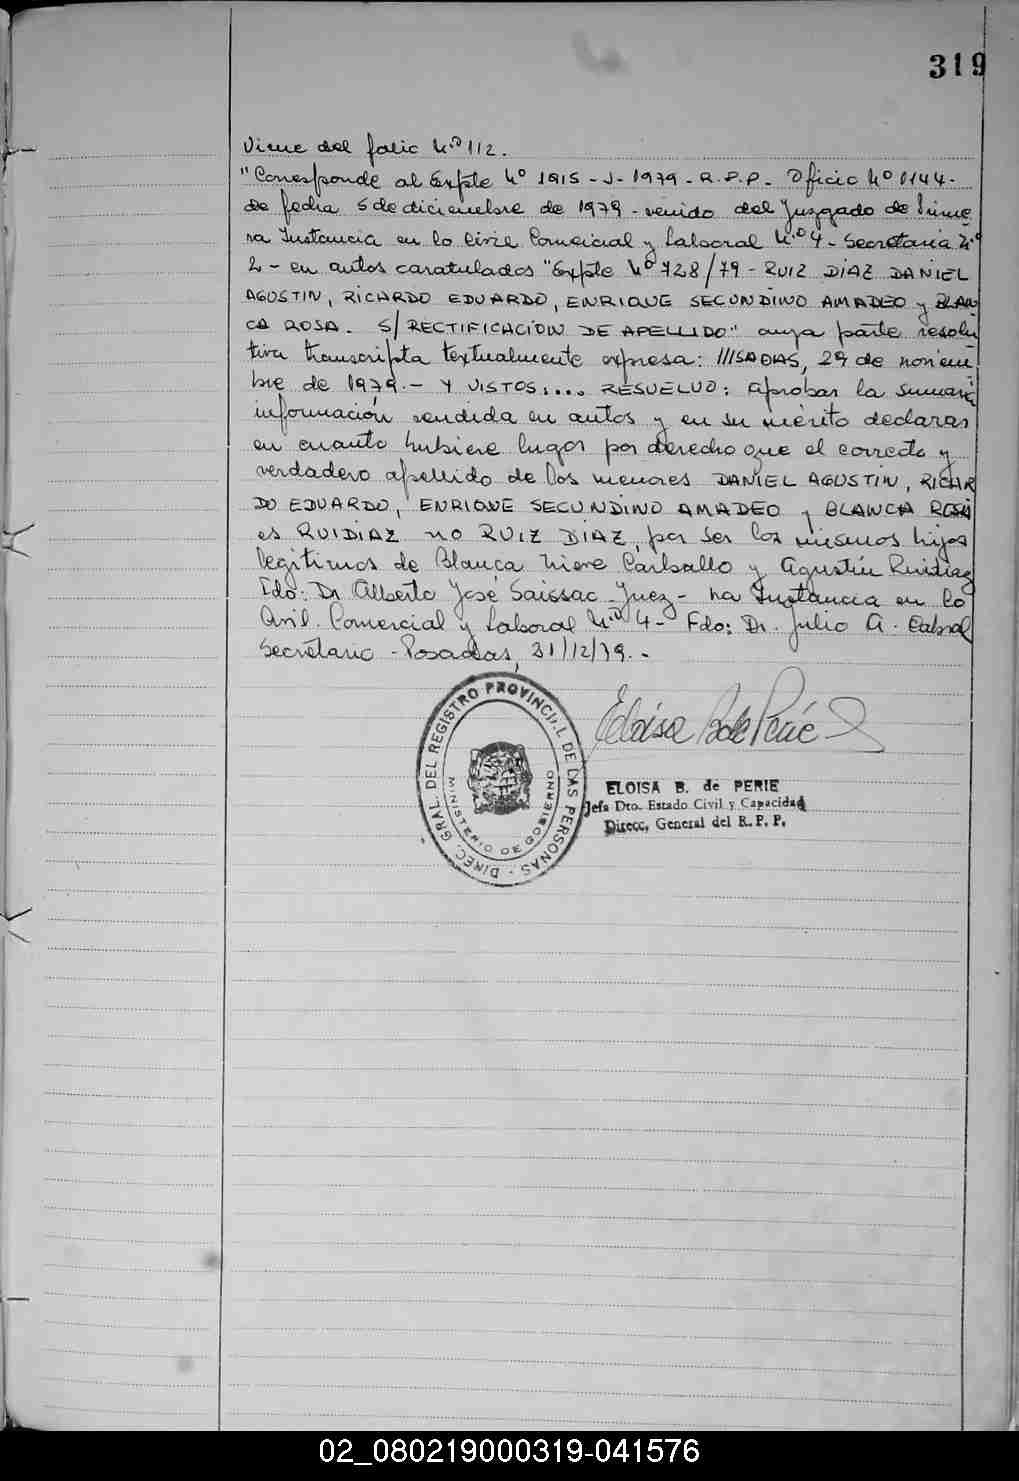 319
Viene del folio Nº 112.
"Corresponde al Expte Nº 1915-J-1979-R.P.P. Oficio Nº 0144-
de fecha 5 de diciembre de 1979 - venido del Juzgado de Prime
ra Instancia en lo Civil Comercial y Laboral Nº 4 - Secretaria Nº
2 - en autos caratulados "Expte Nº 728/79 - RUIZ DIAZ DANIEL
AGUSTIN, RICARDO EDUARDO, ENRIQUE SECUNDINO AMADEO y BLAN
CA ROSA. S/RECTIFICACION DE APELLIDO" cuya parte resolu
tiva transcripta textualmente expresa: ///SADAS, 29 de noviem
bre de 1979.- Y VISTOS:... RESUELVO: aprobar la sumaria
información rendida en autos y en su mérito declarar
en cuanto hubiere lugar por derecho que el correcto y
verdadero apellido de los menores DANIEL AGUSTIN, RICAR
DO EDUARDO, ENRIQUE SECUNDINO AMADEO y BLANCA ROSA
es RUIDIAZ no RUIZ DIAZ, por ser los mismos hijos
legitimos de Blanca Carballo y Agustín Ruidiaz
Fdo: Dr Alberto José Saissac - Juez - Instancia en lo
Civil. Comercial y Laboral Nº 4 - Fdo: Dr. Julio A. Cabral
Secretario - Posadas, 31/12/79. -
DIREC. GRAL. DEL REGISTRO PROVINCIAL DE LAS PERSONAS -
MINISTERIO DE GOBIERNO
Eloisa B de Perié
ELOISA B. de PERIE
Jefa Dto. Estado Civil y Capacidad
Direcc. General del R. P. P.
02_080219000319-041576